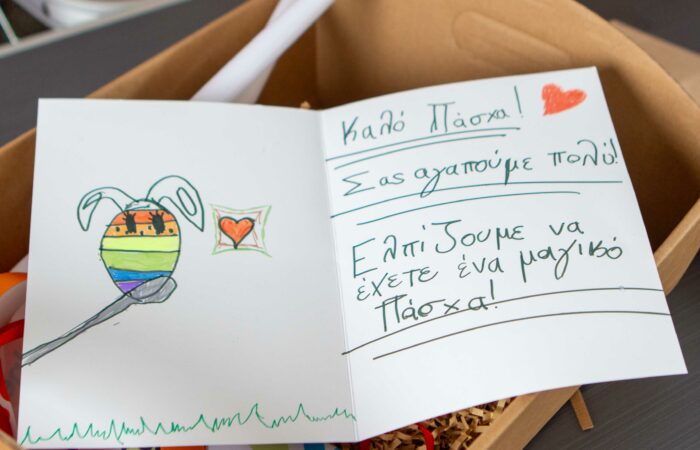 Καλό Πάσχα!
Σας αγαπούμε πολύ!
Ελπίζουμε να
έχετε ένα μαγικό
Πάσχα!